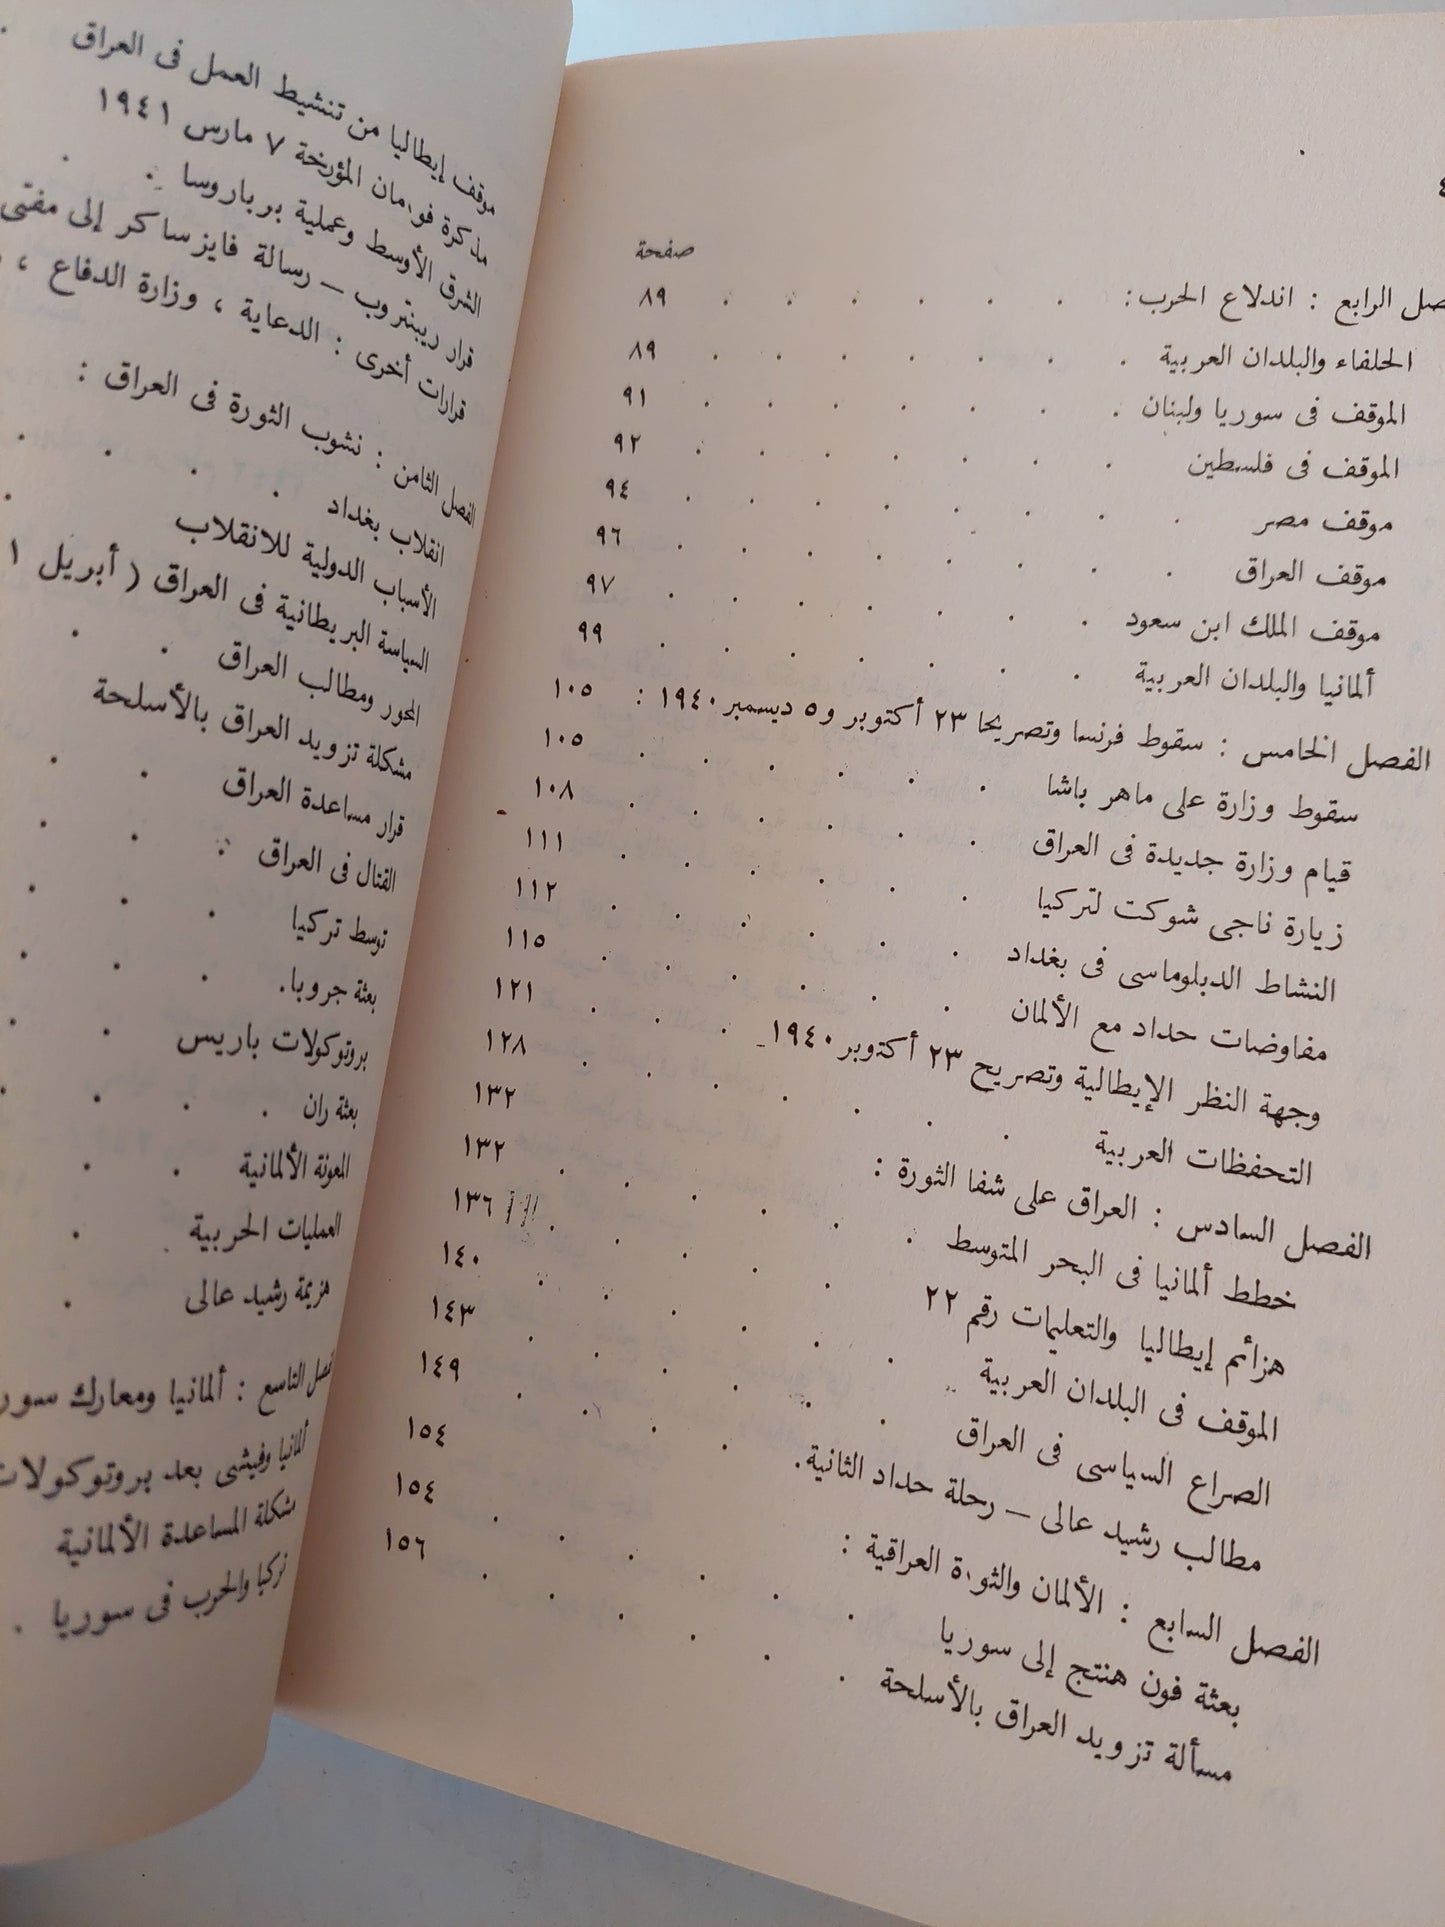 صفحة
الرابع : اندلاع الحرب: . . . . . . ٨٩
الحلفاء والبلدان العربية . . . . . . . ٨٩
الموقف فى سوريا ولبنان . . . . . . . ٩١
الموقف فى فلسطين . . . . . . . ٩٢
موقف مصر . . . . . . . . ٩٤
موقف العراق . . . . . . . . ٩٦
موقف الملك ابن سعود . . . . . . . ٩٧
ألمانيا والبلدان العربية . . . . . . . ٩٩
الفصل الخامس : سقوط فرنسا وتصريحا ٢٣ أكتوبر و٥ ديسمبر ١٩٤٠ : ١٠٥
سقوط وزارة على ماهر باشا . . . . . . ١٠٥
قيام وزارة جديدة فى العراق . . . . . . ١٠٨
زيارة ناجى شوكت لتركيا . . . . . . ١١١
النشاط الدبلوماسى فى بغداد . . . . . . ١١٢
مفاوضات حداد مع الألمان . . . . . . ١١٥
وجهة النظر الإيطالية وتصريح ٢٣ أكتوبر ١٩٤٠ . . . ١٢١
التحفظات العربية . . . . . . . ١٢٨
الفصل السادس : العراق على شفا الثورة : ١٣٢
خطط ألمانيا فى البحر المتوسط . . . . . . ١٣٢
هزائم إيطاليا والتعليمات رقم ٢٢ . . . . . ١٣٦
الموقف فى البلدان العربية . . . . . . ١٤٠
الصراع السياسى فى العراق . . . . . . ١٤٣
مطالب رشيد عالى – رحلة حداد الثانية. . . . . ١٤٩
الفصل السابع : الألمان والثورة العراقية : ١٥٤
بعثة فون هنتج إلى سوريا . . . . . . ١٥٤
مسألة تزويد العراق بالأسلحة . . . . . . ١٥٦
موقف إيطاليا من تنشيط العمل فى العراق .
مذكرة فورمان المؤرخة ٧ مارس ١٩٤١
الشرق الأوسط وعملية برباروسا . .
قرار ريبنتروب – رسالة فايزساكر إلى مفتى
قرارات أخرى : الدعاية ، وزارة الدفاع ،
الفصل الثامن : نشوب الثورة فى العراق :
انقلاب بغداد . . . .
الأسباب الدولية للانقلاب .
السياسة البريطانية فى العراق ( أبريل
المحور ومطالب العراق . .
مشكلة تزويد العراق بالأسلحة
قرار مساعدة العراق . .
القتال فى العراق . . .
توسط تركيا . . .
بعثة جروبا. . . .
بروتوكولات باريس . .
بعثة ران . . . .
المعونة الألمانية . .
العمليات الحربية . .
هزيمة رشيد عالى .
التاسع : ألمانيا ومعارك
ألمانيا وفيشى بعد بروتوكولات
مشكلة المساعدة الألمانية
تركيا والحرب فى سوريا .